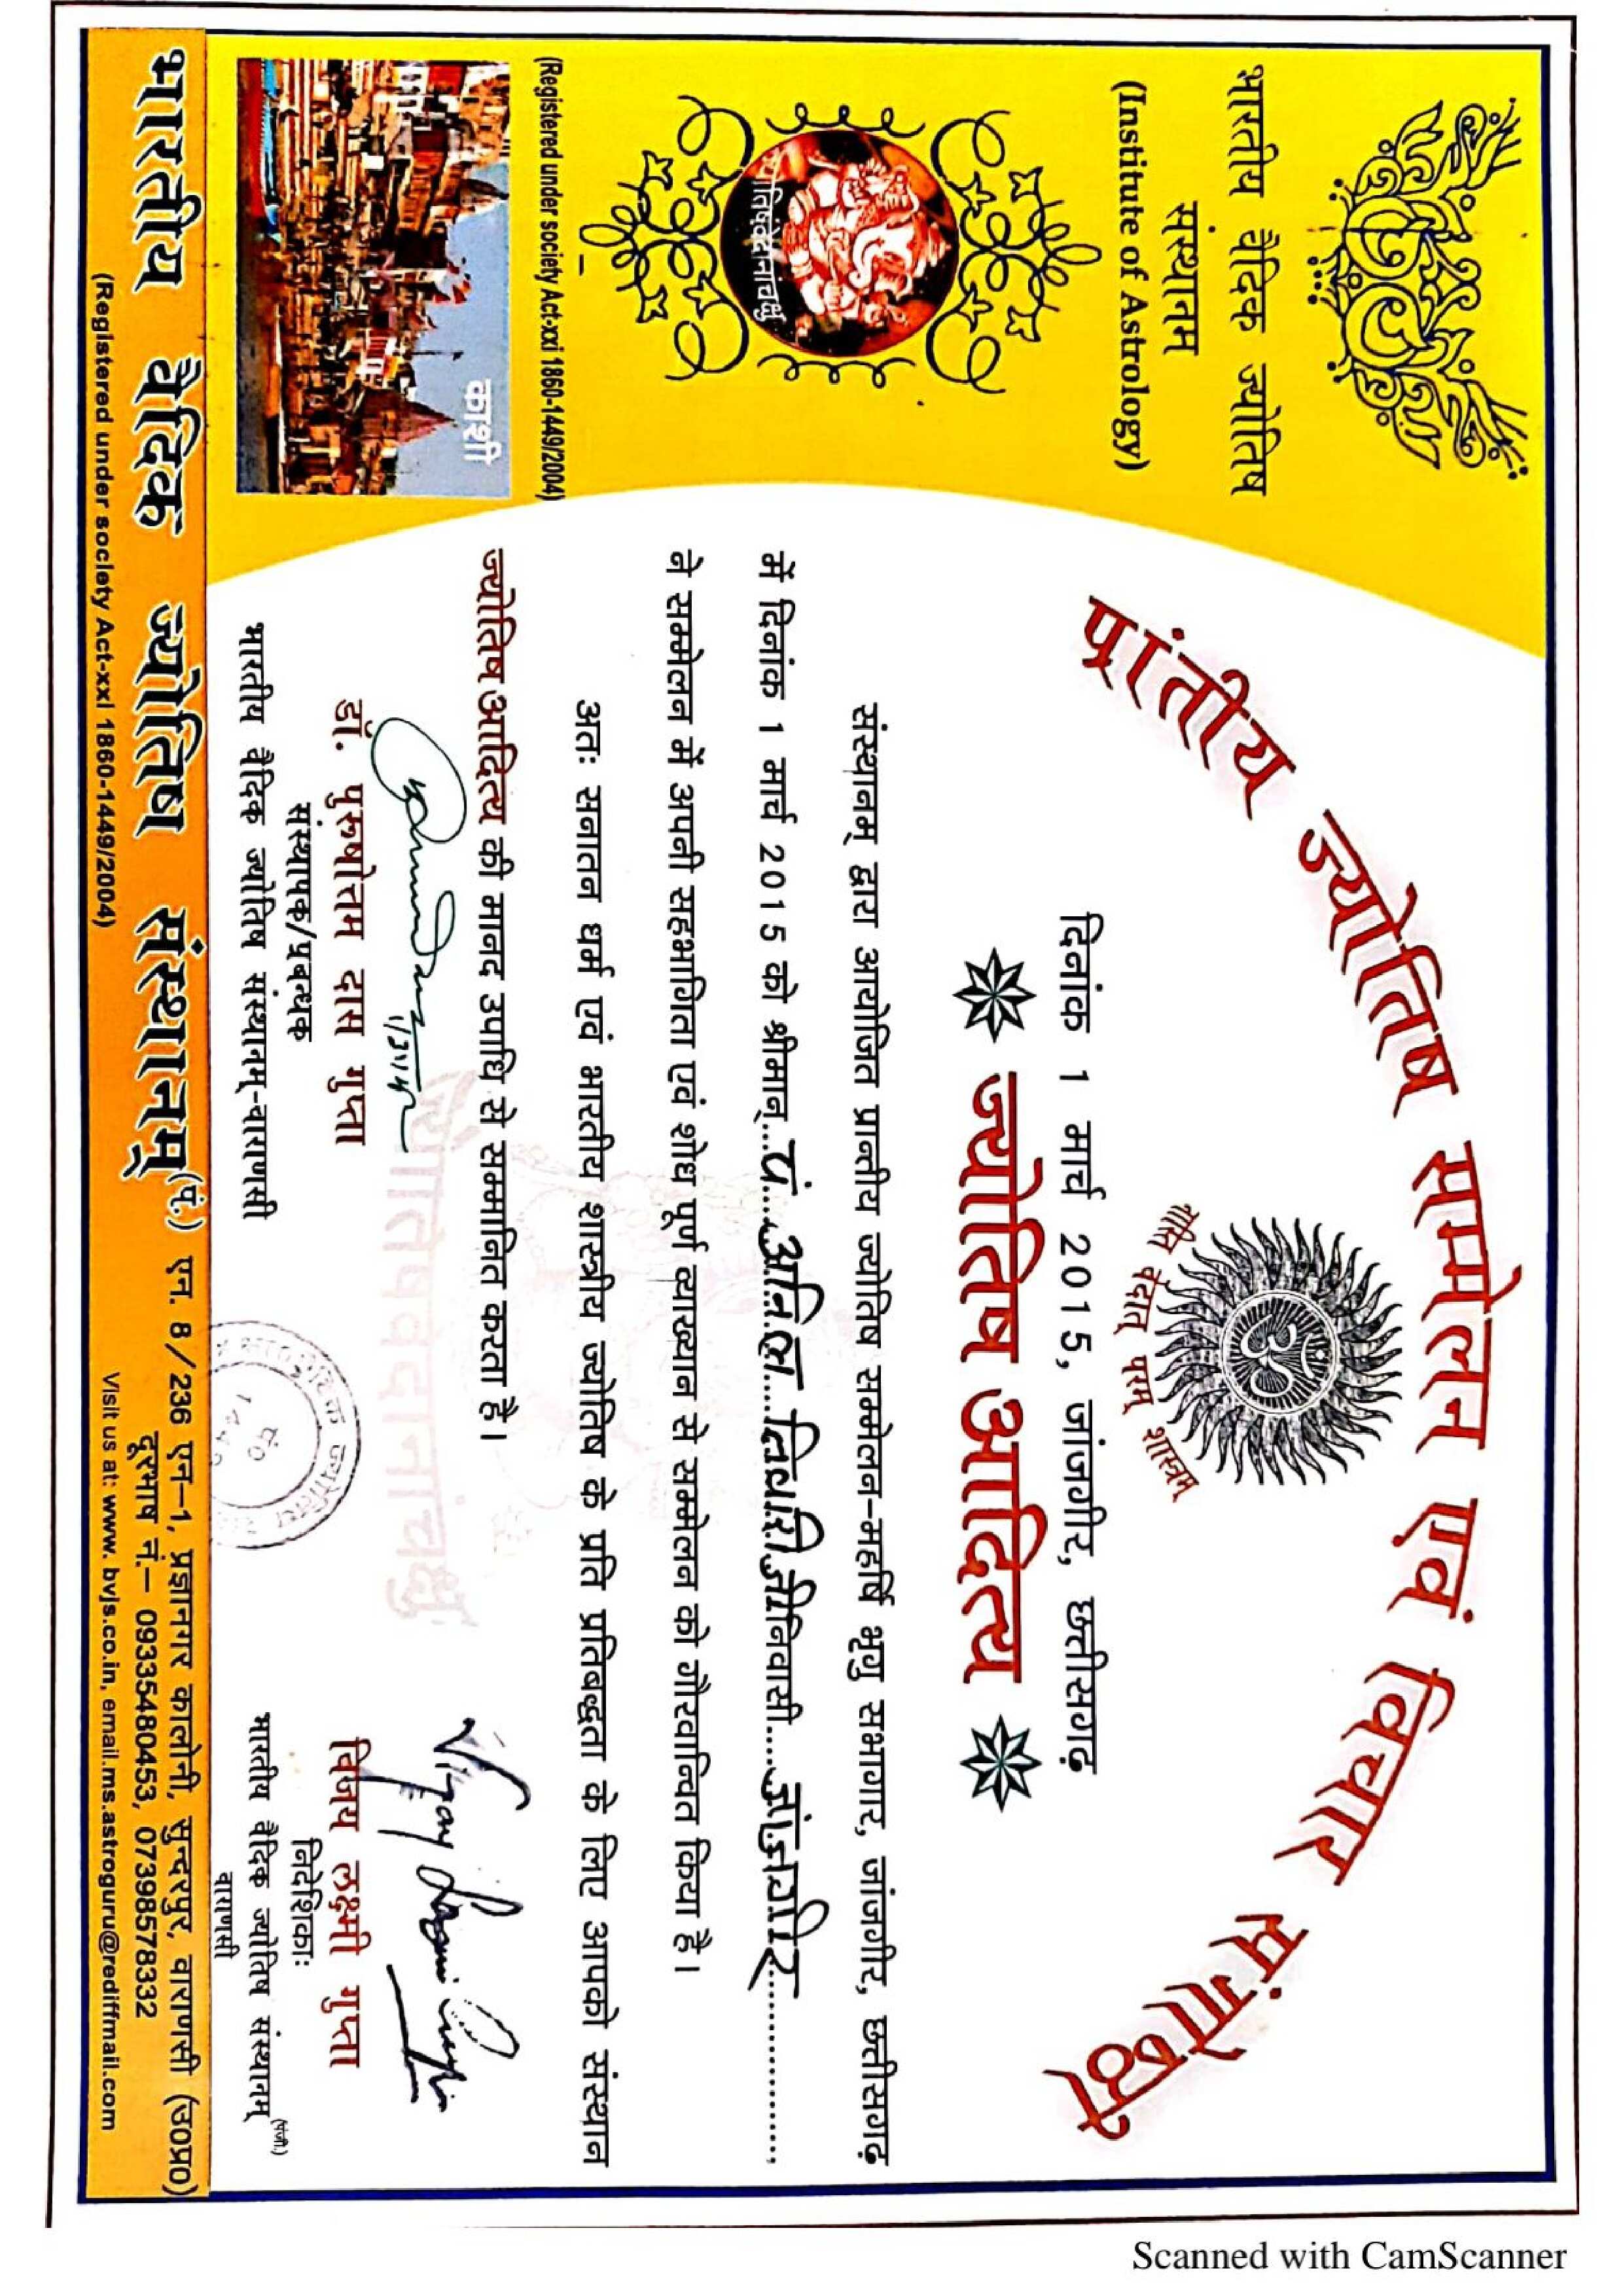 प्रांतीय ज्योतिष सम्मेलन एवं विचार संगोष्ठी
नास्ति वेदात् परम् शास्त्रम्
भारतीय वैदिक ज्योतिष
संस्थानम
(Institute of Astrology)
ज्योतिषंवेदानांचक्षु
(Registered under society Act-xxi 1860-1449/2004)
काशी
दिनांक 1 मार्च 2015, जांजगीर, छत्तीसगढ़
ज्योतिष आदित्य
संस्थानम् द्वारा आयोजित प्रान्तीय ज्योतिष सम्मेलन-महर्षि भृगु सभागार, जांजगीर, छत्तीसगढ़
में दिनांक 1 मार्च 2015 को श्रीमान्...पं....अनिल....तिवारी जी निवासी....जांजगीर..................
ने सम्मेलन में अपनी सहभागिता एवं शोध पूर्ण व्याख्यान से सम्मेलन को गौरवान्वित किया है।
अतः सनातन धर्म एवं भारतीय शास्त्रीय ज्योतिष के प्रति प्रतिबद्धता के लिए आपको संस्थान
ज्योतिष आदित्य की मानद उपाधि से सम्मानित करता है।
ज्योतिषंवेदानांचक्षु
डॉ. पुरूषोत्तम दास गुप्ता
संस्थापक/प्रबन्धक
भारतीय वैदिक ज्योतिष संस्थानम्-वाराणसी
Vijay Laxmi Gupta
विजय लक्ष्मी गुप्ता
निदेशिकाः
भारतीय वैदिक ज्योतिष संस्थानम् (पंजी.)
वाराणसी
वैदिक ज्योतिष
पं०
भारतीय वैदिक ज्योतिष संस्थानम् (पं.)
(Registered under society Act-xxi 1860-1449/2004)
एन. 8/236 एन-1, प्रज्ञानगर कालोनी, सुन्दरपुर, वाराणसी (उ०प्र०)
दूरभाष नं.– 09335480453, 07398578332
Visit us at: www. bvjs.co.in, email.ms.astroguru@rediffmail.com
Scanned with CamScanner